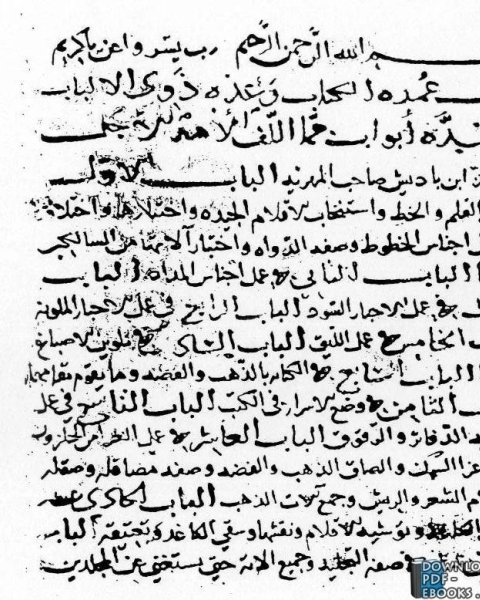 بسم الله الرحمن الرحيم رب يسر واعن ياكريم
عمده الكتاب وعده ذوى الالباب
أبواب مما اللف الامير الاجل
ابن باديس صاحب المهديه الباب الاول
القلم والخط واستنخاب الاقلام الجيده واختلافها
اجناس الخطوط وصفه الدواه واختيار آلاتها من السكاكين
الباب الثانى في عمل اجناس المداد الباب
في عمل الاحبار السود الباب الرابع في عمل الاحبار الملونه
الخامس في عمل الليق الباب السادس في تلوين الاصباغ
الباب السابع في الكتابه بالذهب والفضه وما يقوم مقامهما
الثامن في وضع الاسرار في الكتب الباب التاسع في عمل
الدفاتر والرقوق الباب العاشر في عمل الغرا من الحلزون
غرا السمك والصاق الذهب والفضه وصفه مصاقله وصقله
الشعر والريش وجميع آلات الذهب الباب الحادى عشر
وتوشيه الاقلام ونقشها وسقي الكاغد وتعتيقه الباب
صفه التجليد وجميع آلاته حتى يستغنى عن المجلدين
DOWNLO
PDF-
EBOOKS.